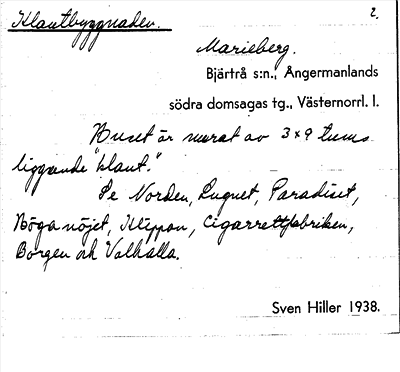 Klautbyggnaden. 2.
Marieberg.
Bjärtrå s:n., Ångermanlands
södra domsagas tg., Västernorrl. l.
"Huset är murat av 3x9 tums
liggande klaut."
Se Norden, Lugnet, Paradiset,
Höga nöjet, Kleppan, Cigarrettfabriken,
Borgen och Valhalla.
Sven Hiller 1938.